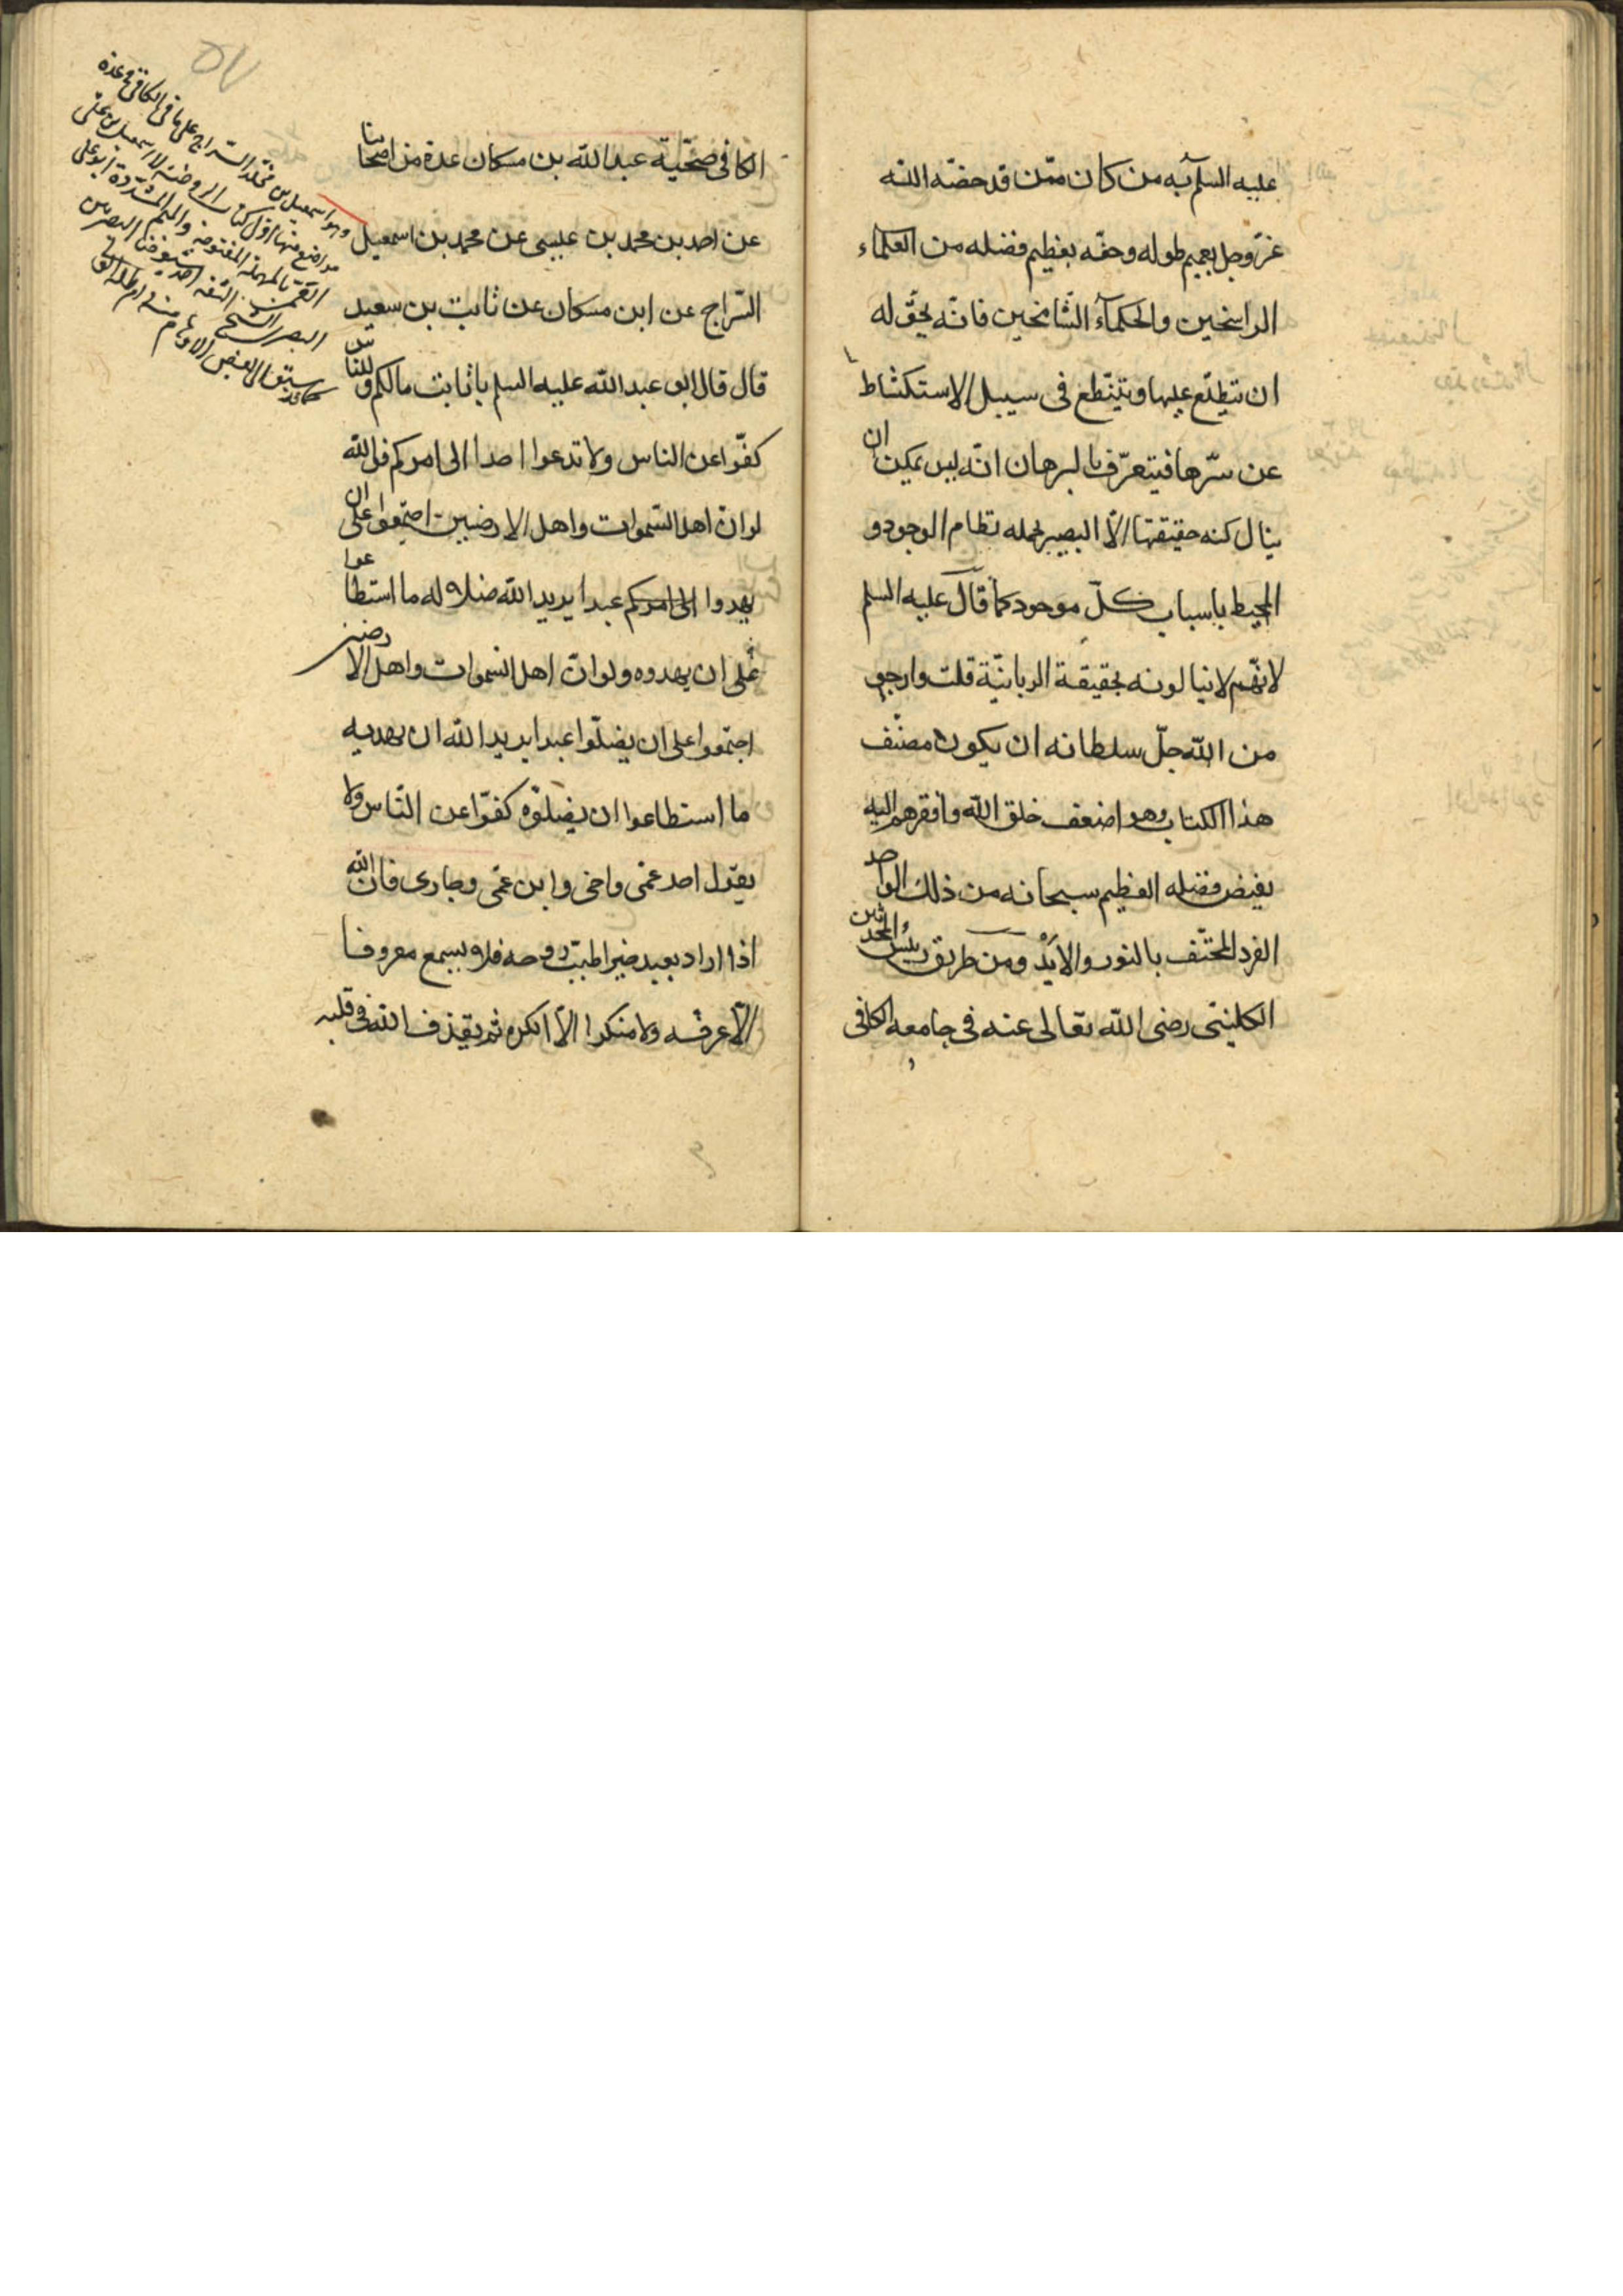 عليه السلم به من كان ممن قد خصّه الله
عزّ وجل بعميم طوله وحفّه بعظيم فضله من العلماء
الراسخين والحكمآء الشامخين فانّه يحقّ له
ان يتطلّع عليها ويتنطّع فى سبيل الاستكشاط
عن سرّها فيتعرّف بالبرهان انّه ليس يمكن ان
ينال كنه حقيقتها الّا البصير بجمله نظام الوجود و
المحيط باسباب كلّ موجود كما قال عليه السلم
لانّهم لا ينالونه بحقيقة الربانيّة قلت وارجو
من الله جلّ سلطانه ان يكون مصنّف
هذا الكتاب وهو اضعف خلق الله وافقرهم اليه
بفيض فضله العظيم سبحانه من ذلك الواحد
الفرد المحتّف بالنور والأيْد ومن طريق رئيس المحدثين
الكلينى رضى الله تعالى عنه فى جامعه الكافى
الكافى صحّيّة عبد الله بن مسكان عدة من اصحابنا
عن احمد بن محمد بن عيسى عن محمد بن اسمعيل
السّراج عن ابن مسكان عن ثابت بن سعيد
قال قال ابو عبد الله عليه السلم يا ثابت مالكم وللناس
كفّوا عن الناس ولا تدعوا احدا الى امركم فو الله
لو انّ اهل السّموات واهل الارضين اجتمعوا على ان
يهدوا الى امركم عبدا يريد الله ضلاله ما استطاعوا
على ان يهدوه ولو انّ اهل السموات واهل الارضين
اجتمعوا على ان يضلّوا عبدا يريد الله ان يهديه
ما استطاعوا ان يضلّوه كفّوا عن النّاس ولا
يقول احد عمّى واخى وابن عمّى وجارى فان الله
اذا اراد بعبد خيرا طيّب روحه فلا يسمع معروفا
الّا عرفه ولا منكرا الّا انكره ثم يقذف الله فى قلبه
وهو اسمعيل بن مخلّد السّراج على ما فى الكافى فى عدة
مواضع منها اول كتاب الروضة لا اسمعيل بن على
القمّى بالمهملة المفتوحة والميم المشدّدة ابو على
البصرى الثقة
كما قد سبق الى بعض الاوهام